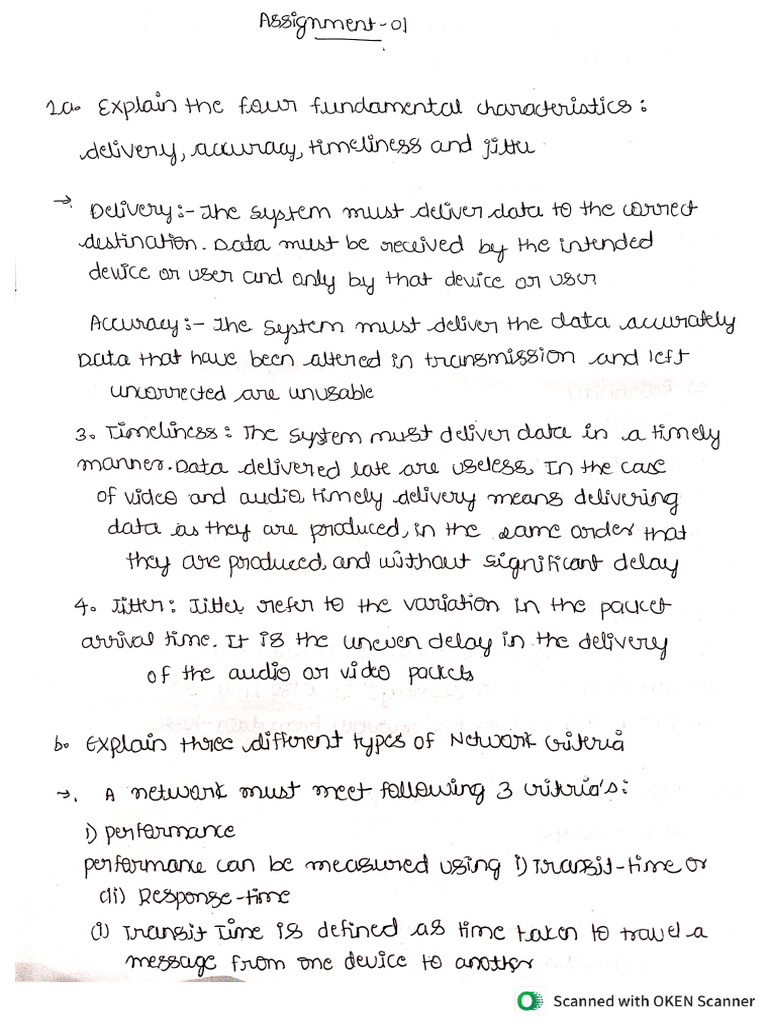 Assignment-01
1a. Explain the four fundamental characteristics:
delivery, accuracy, timeliness and jitter
→ Delivery:- The system must deliver data to the correct
destination. Data must be received by the intended
device or user and only by that device or user
Accuracy:- The system must deliver the data accurately
Data that have been altered in transmission and left
uncorrected are unusable
3. Timeliness: The system must deliver data in a timely
manner. Data delivered late are useless. In the case
of video and audio, timely delivery means delivering
data as they are produced, in the same order that
they are produced, and without significant delay
4. Jitter: Jitter refer to the variation in the packet
arrival time. It is the uneven delay in the delivery
of the audio or video packets
b. Explain three different types of Network criteria
→. A network must meet following 3 critria's:
i) performance
performance can be measured using i) Transit-time or
(ii) Response-time
(i) Transit Time is defined as time taken to travel a
message from one device to another
Scanned with OKEN Scanner